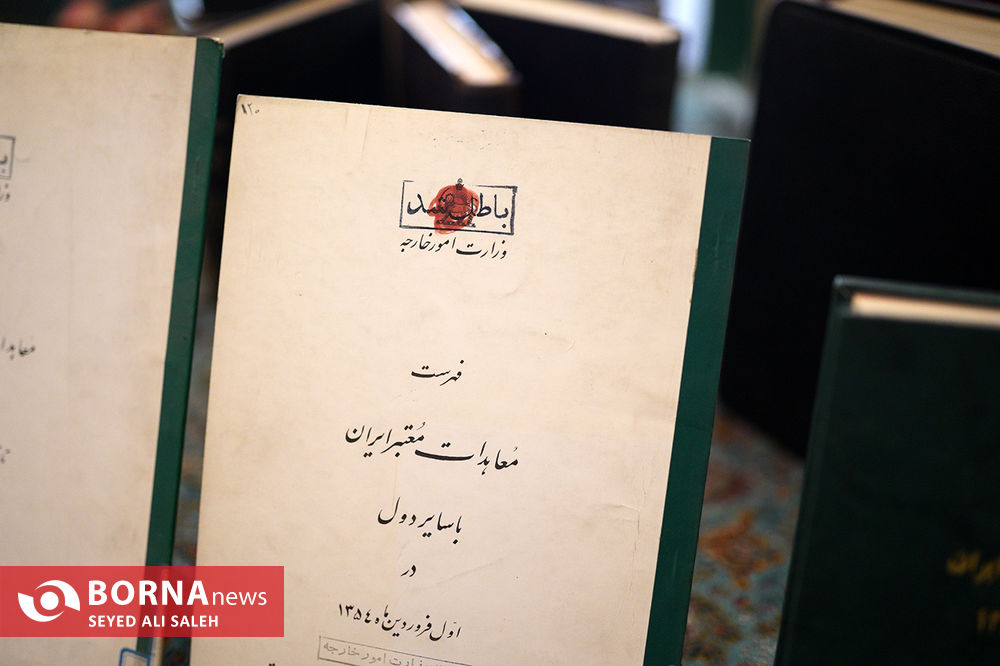 ۱۲۰
باطل شد
وزارت امور خارجه
فهرست
مُعاهدات مُعتبر ایران
با سایر دول
در
اوّل فروردین ماه ۱۳۵۴
وزارت امور خارجه
BORNA news
SEYED ALI SALEH